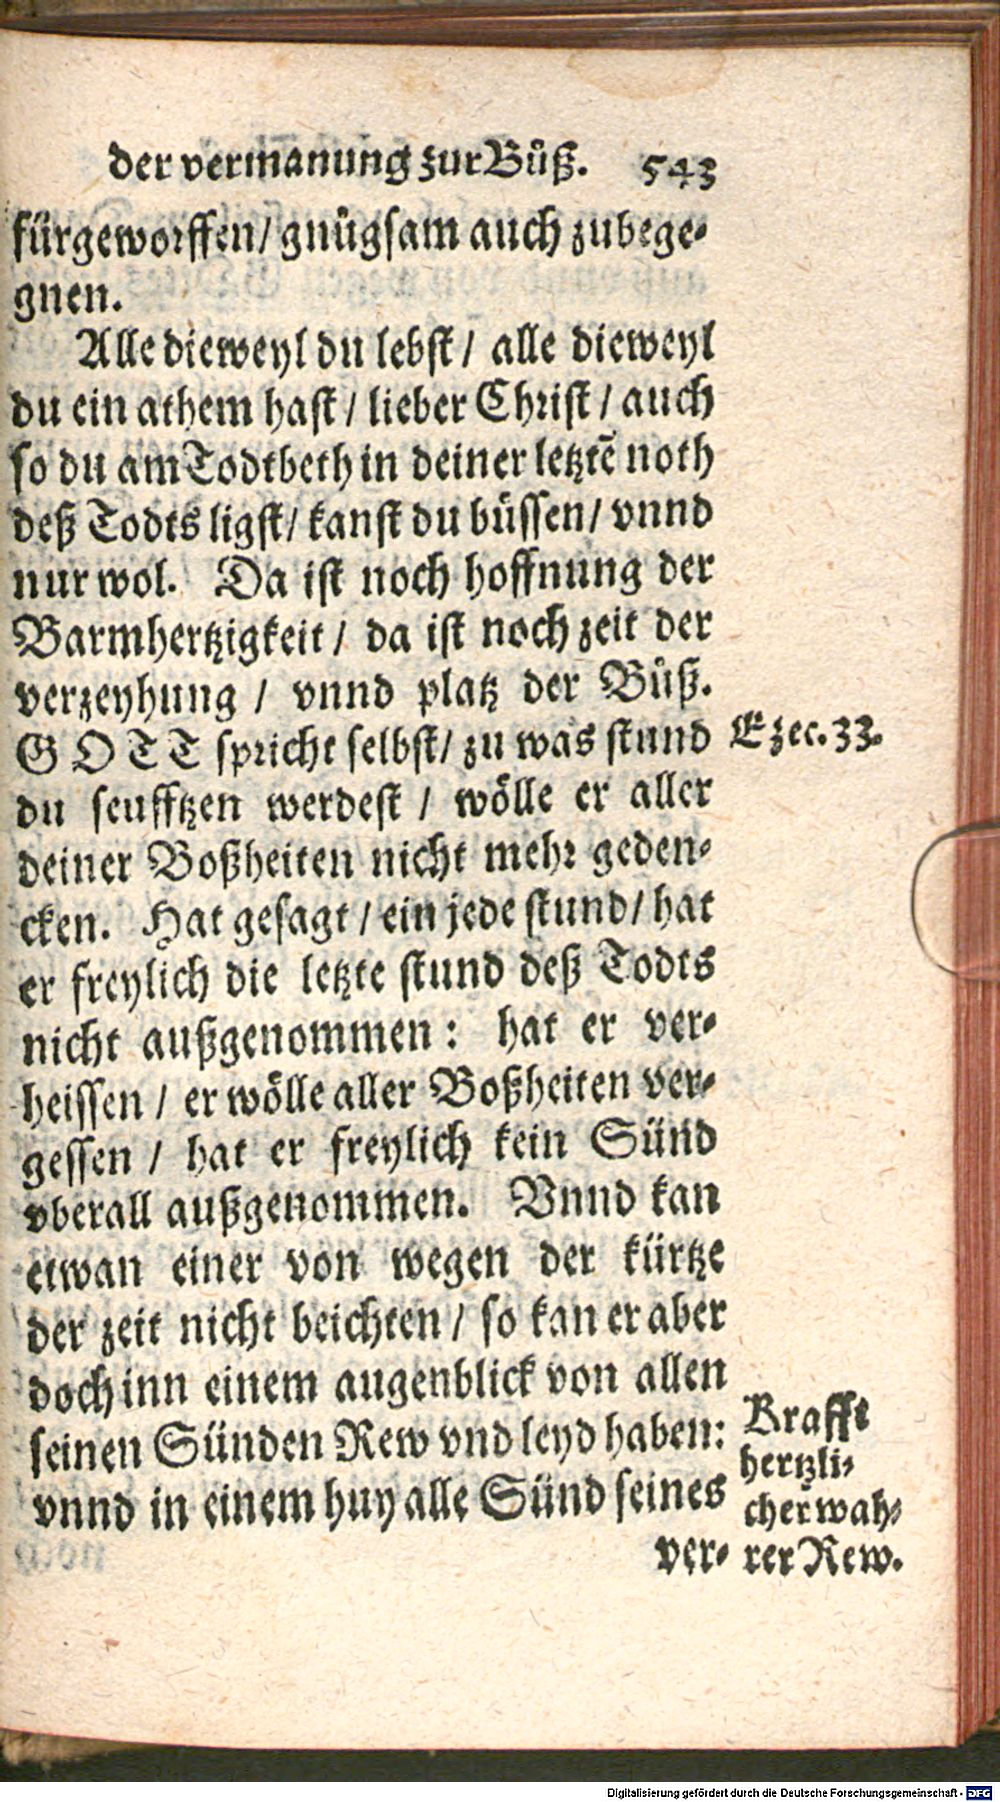 der vermanung zur Bůß. 543
fürgeworffen/ gnůgsam auch zubege-
gnen.
Alle dieweyl du lebst / alle dieweyl
du ein athem hast / lieber Christ / auch
so du am Todtbeth in deiner letztẽ noth
deß Todts ligst/ kanst du büssen/ vnnd
nur wol. Da ist noch hoffnung der
Barmhertzigkeit / da ist noch zeit der
verzeyhung / vnnd platz der Bůß.
GOTT spricht selbst/ zu was stund
du seufftzen werdest / wölle er aller
deiner Boßheiten nicht mehr geden-
cken. Hat gesagt / ein jede stund/ hat
er freylich die letzte stund deß Todts
nicht außgenommen: hat er ver-
heissen / er wölle aller Boßheiten ver-
gessen / hat er freylich kein Sünd
vberall außgenommen. Vnnd kan
etwan einer von wegen der kürtze
der zeit nicht beichten / so kan er aber
doch inn einem augenblick von allen
seinen Sünden Rew vnd leyd haben:
vnnd in einem huy alle Sünd seines
ver-
Ezec. 33.
Krafft
hertzli-
cher wah-
rer Rew.
Digitalisierung gefördert durch die Deutsche Forschungsgemeinschaft - DFG